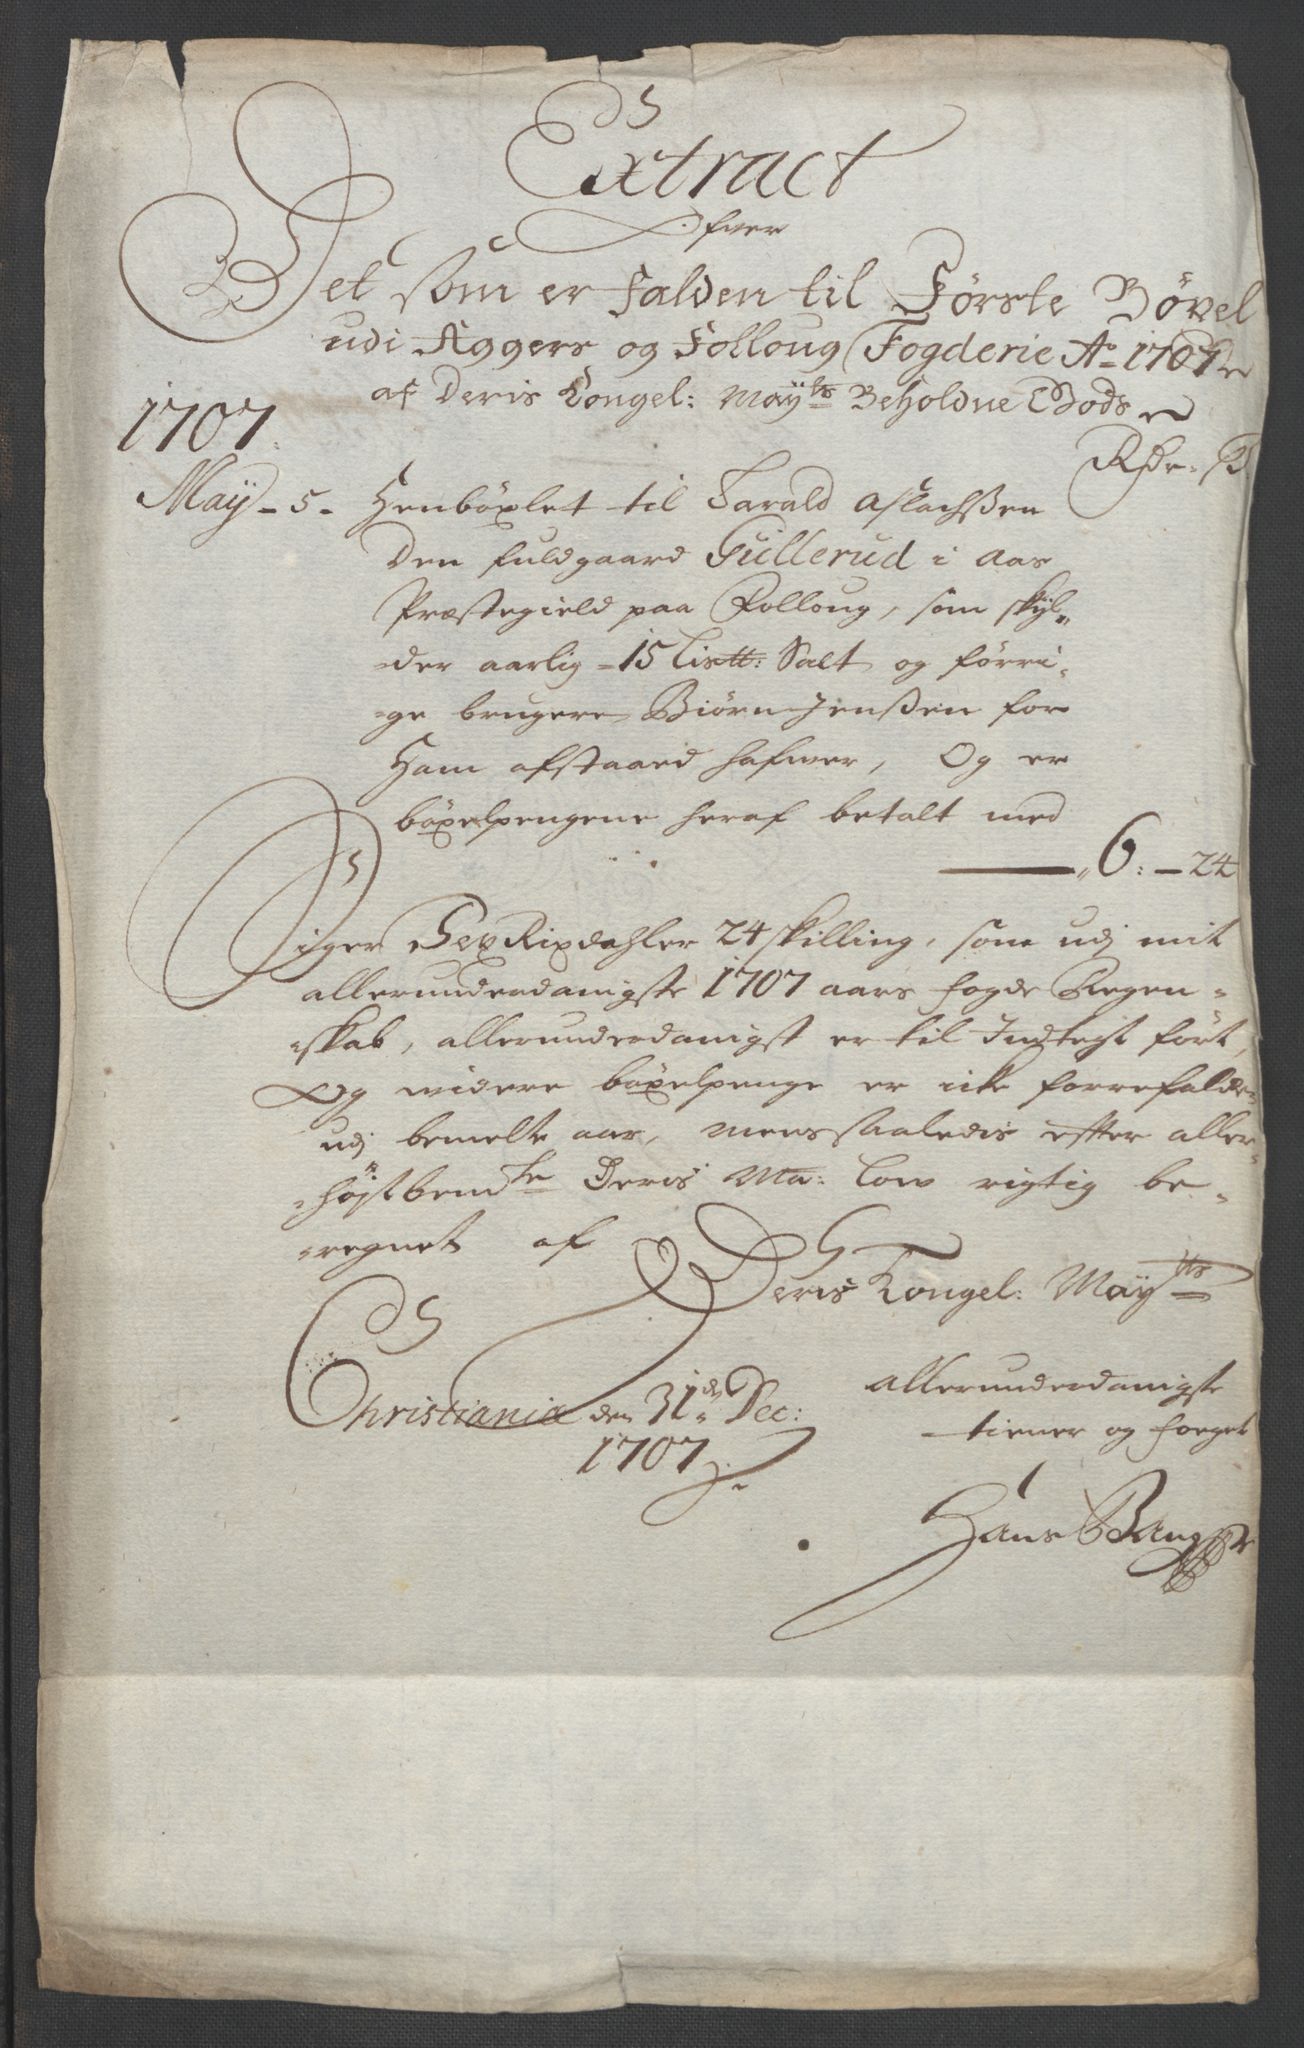 Extract
Ofver
Det som er falden til Første Böxel
udi Aggers og Folloug Fogderie Ao 1707
af Deris Kongel: Mayts Beholdne Gods
1707.
Rdr. S
May - 5 - Henböxlet til Tarald Aslachßen
den fuldgaard Gullerud i Aas
Præstegield paa Folloug, som skyl-
der aarlig - 15 Listt: Salt og förri-
ge brugere Biörn Jenßen for
ham afstaaed hafver, Og er
böxelpengene heraf betalt med
6: - 24
Siger Sex Rixdahler 24 skilling, som udj mit
allerunderdanigste 1707 aars fogde Regen-
skab, allerunderdanigst er til Indtegt fört,
Og videre böxelpenge er icke forrefalden
udj bemelte aar, mens saaledis efter aller-
höjstbemte Deris Ma: Low rigtig be-
regnet af
Deris Kongel: Mayts
Christiania den 31de Dec:
1707
allerunderdanigste
tiener og foeget
Hans Bang